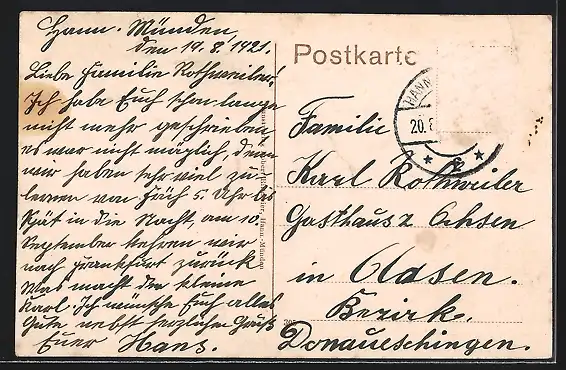 Hann. Münden,
den 19.8.1921.
Liebe Familie Rothweiler!
Ich habe Euch schon lange
nicht mehr geschrieben
es war nicht möglich, denn
wir haben sehr viel zu
lernen von früh 5 Uhr bis
spät in die Nacht, am 10.
September kehren wir
nach Frankfurt zurück
Was macht der kleine
Karl. Ich wünsche Euch alles
Gute nebst herzlichen Gruß
Euer Hans.
Postkarte
HANN
20.8
* 2 *
Familie
Karl Rothweiler
Gasthaus z Ochsen
in Aasen.
Bezirk.
Donaueschingen.
Hann.-Münden